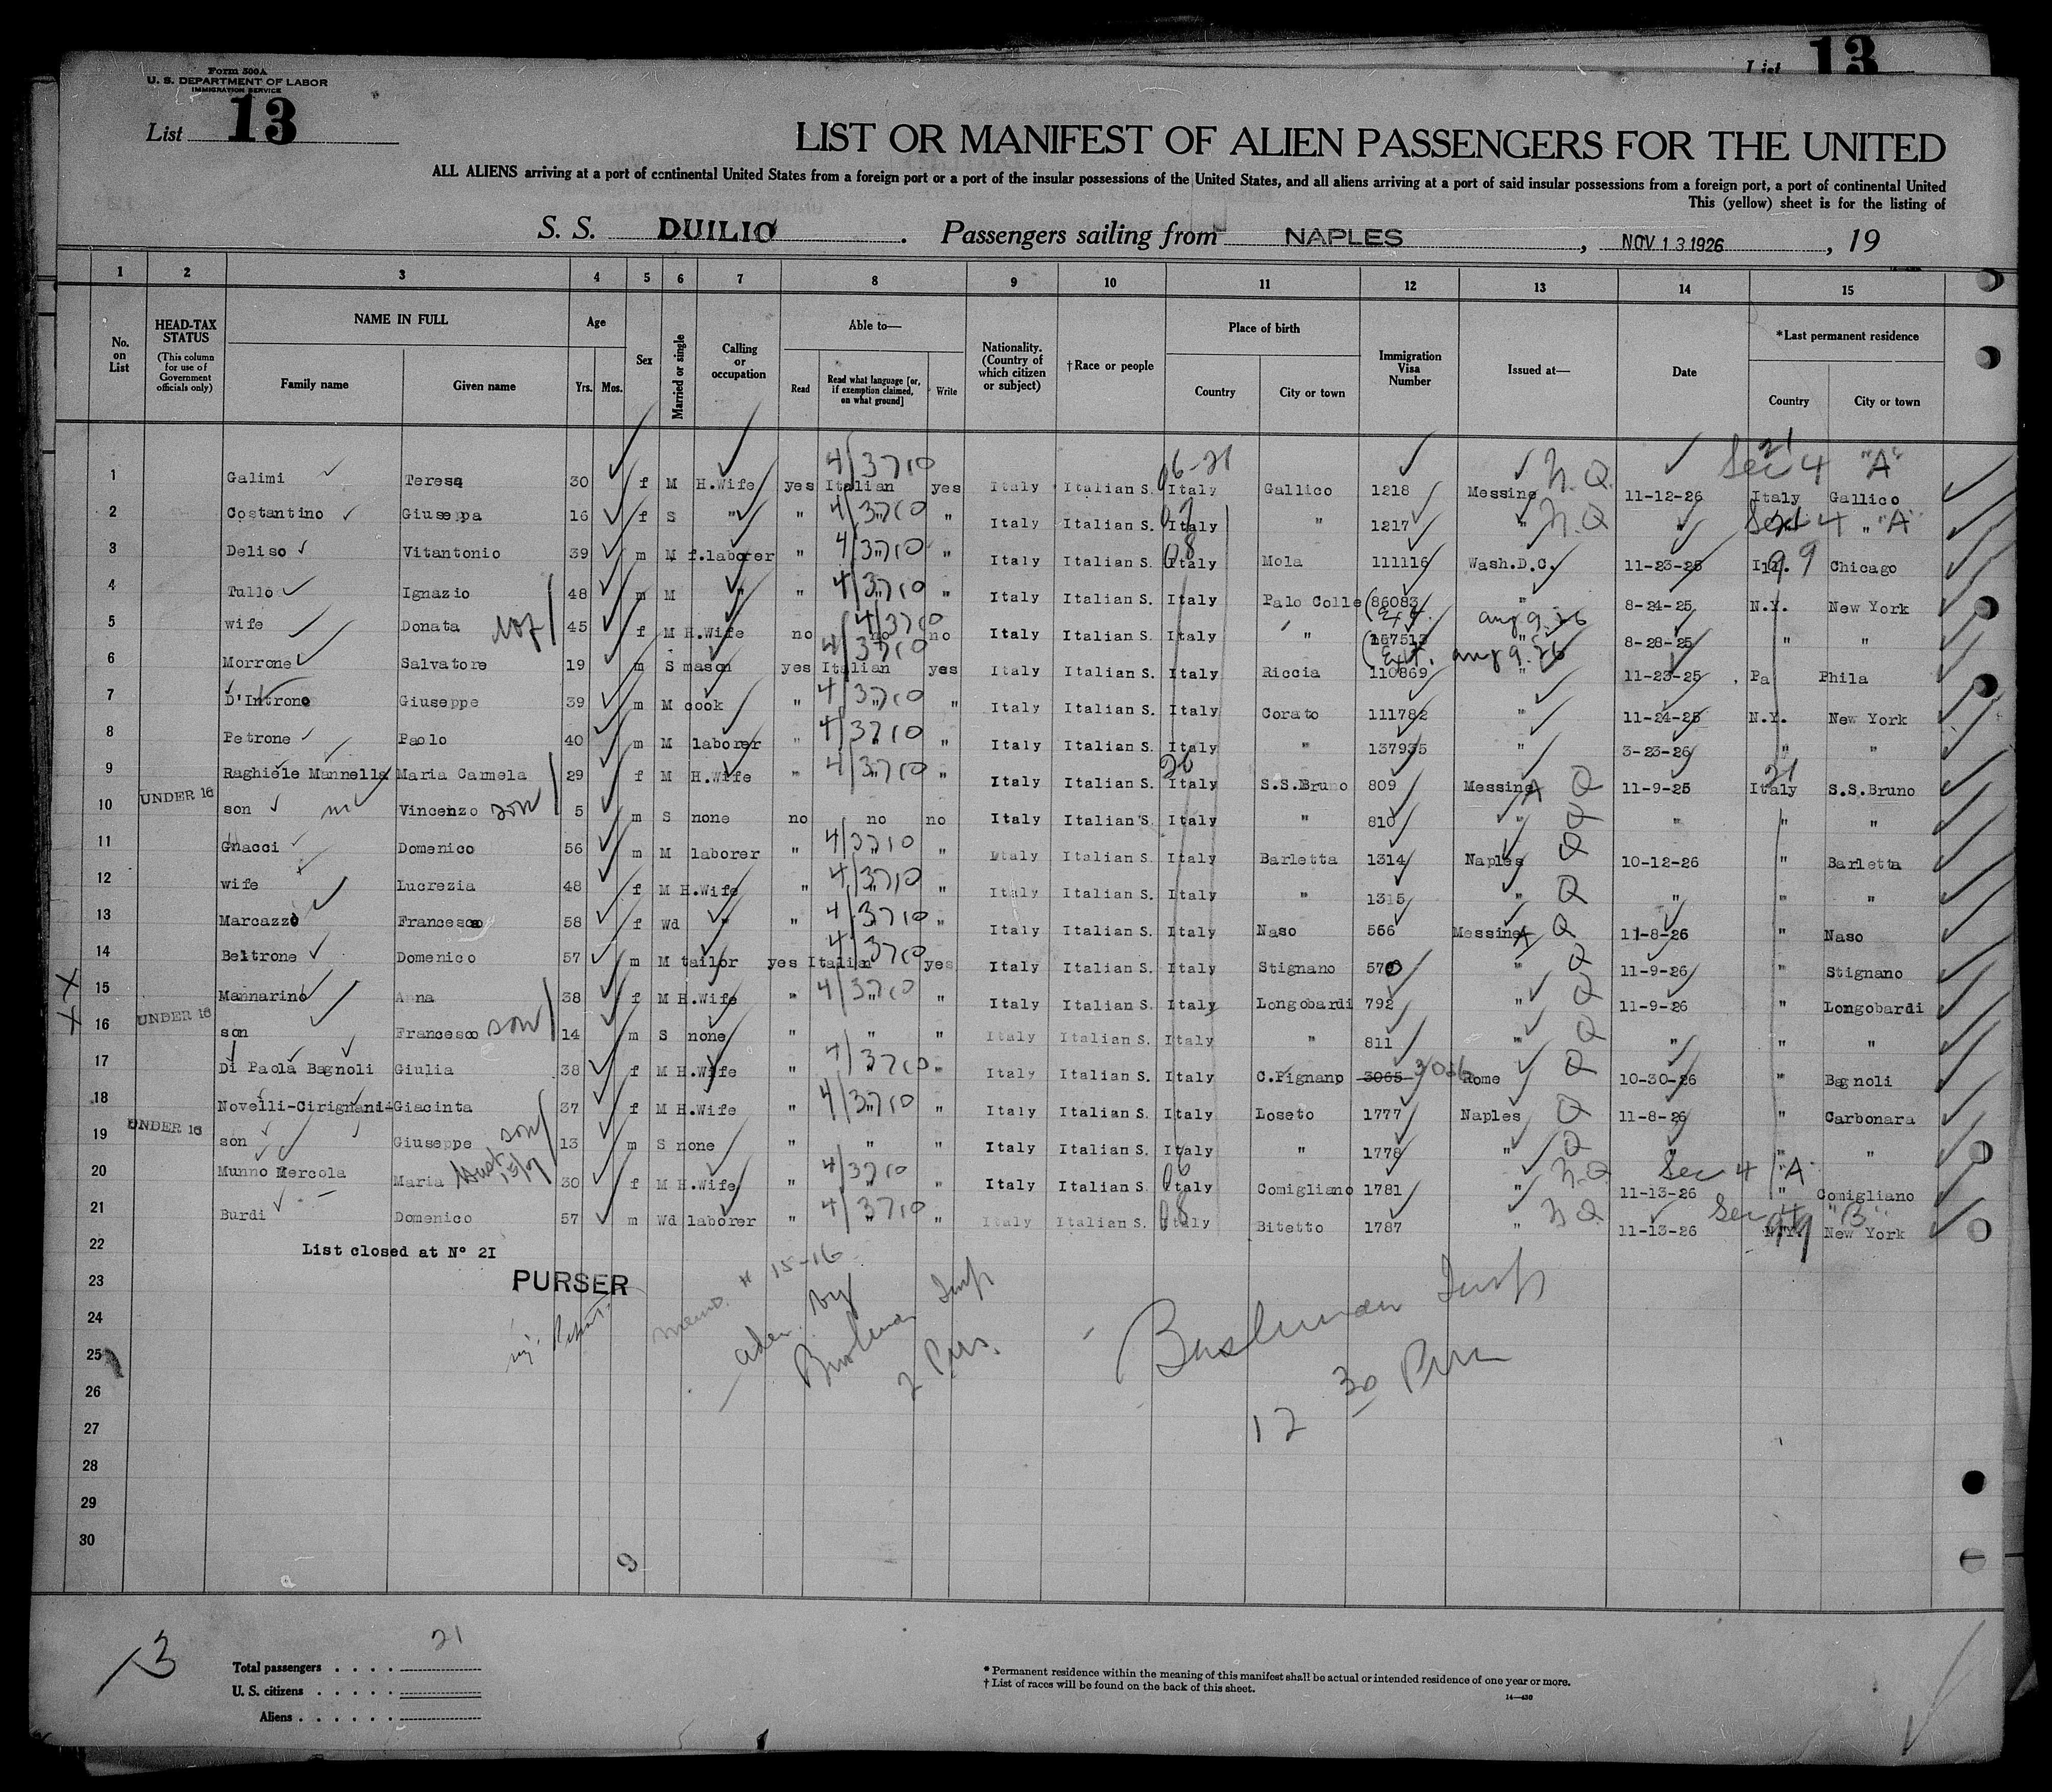 Form 500A
U. S. DEPARTMENT OF LABOR
IMMIGRATION SERVICE
List 13
List 13
LIST OR MANIFEST OF ALIEN PASSENGERS FOR THE UNITED
ALL ALIENS arriving at a port of continental United States from a foreign port or a port of the insular possessions of the United States, and all aliens arriving at a port of said insular possessions from a foreign port, a port of continental United
This (yellow) sheet is for the listing of
S. S. DUILIO. Passengers sailing from NAPLES, NOV 13 1926, 19
1 2 3 4 5 6 7 8 9 10 11 12 13 14 15
No. on List
HEAD-TAX STATUS (This column for use of Government officials only)
NAME IN FULL Family name Given name
Age Yrs. Mos.
Sex
Married or single
Calling or occupation
Able to— Read Read what language [or, if exemption claimed, on what ground] Write
Nationality. (Country of which citizen or subject)
†Race or people
Place of birth Country City or town
Immigration Visa Number
Issued at—
Date
*Last permanent residence Country City or town
1 Galimi Teresa 30 f M H.Wife yes Italian yes Italy Italian S. Italy Gallico 1218 Messina N.Q. 11-12-26 Sec 4 "A" Italy Gallico
2 Costantino Giuseppa 16 f S " " " " Italy Italian S. Italy " 1217 " N.Q " Sec 4 "A" "
3 Deliso Vitantonio 39 m M f.laborer " " " Italy Italian S. Italy Mola 111116 Wash.D.C. 11-23-25 Ill. Chicago
4 Tullo Ignazio 48 m M " " " " Italy Italian S. Italy Palo Colle (86083 " 8-24-25 N.Y. New York
Ext. aug 9. 26
5 wife Donata 45 f M H.Wife no no no Italy Italian S. Italy " (167513 " 8-28-25 " "
Ext. aug 9. 26
6 Morrone Salvatore 19 m S mason yes Italian yes Italy Italian S. Italy Riccia 110869 " 11-23-25 Pa Phila
7 D'Introno Giuseppe 39 m M cook " " " Italy Italian S. Italy Corato 111782 " 11-24-25 N.Y. New York
8 Petrone Paolo 40 m M laborer " " " Italy Italian S. Italy " 137935 " 3-23-26 " "
9 Raghiele Mannella Maria Carmela 29 f M H.Wife " " " Italy Italian S. Italy S.S.Bruno 809 Messina Q 11-9-26 Italy S.S.Bruno
10 UNDER 16 son Vincenzo son 5 m S none no no no Italy Italian S. Italy " 810 " Q " " "
11 Gnacci Domenico 56 m M laborer " " " Italy Italian S. Italy Barletta 1314 Naples Q 10-12-26 " Barletta
12 wife Lucrezia 48 f M H.Wife " " " Italy Italian S. Italy " 1315 " Q " " "
13 Marcazzo Francesca 58 f Wd " " " " Italy Italian S. Italy Naso 566 Messina Q 11-8-26 " Naso
14 Beltrone Domenico 57 m M tailor yes Italian yes Italy Italian S. Italy Stignano 570 " Q 11-9-26 " Stignano
15 Mannarino Anna 38 f M H.Wife " " " Italy Italian S. Italy Longobardi 792 " Q 11-9-26 " Longobardi
16 UNDER 16 son Francesco son 14 m S none " " " Italy Italian S. Italy " 811 " Q " " "
17 Di Paola Bagnoli Giulia 38 f M H.Wife " " " Italy Italian S. Italy C.Pignano 3065 3036 Rome Q 10-30-26 " Bagnoli
18 Novelli-Cirignani- Giacinta 37 f M H.Wife " " " Italy Italian S. Italy Loseto 1777 Naples Q 11-8-26 " Carbonara
19 UNDER 16 son Giuseppe son 13 m S none " " " Italy Italian S. Italy " 1778 " Q " " "
20 Munno Mercola Maria 30 f M H.Wife " " " Italy Italian S. Italy Comigliano 1781 " N.Q. 11-13-26 Sec 4 "A" " Comigliano
21 Burdi Domenico 57 m Wd laborer " " " Italy Italian S. Italy Bitetto 1787 " N.Q. 11-13-26 Sec 4 "B" N.Y. New York
22 List closed at N° 21
23 PURSER
24
25
26
27
28
29
30
memo. # 15-16
adm. by
Bushman Insp
2 Pm.
Bushman Insp
12 30 Pm
9
13
Total passengers . . . . 21
U. S. citizens . . . . .
Aliens . . . . . .
* Permanent residence within the meaning of this manifest shall be actual or intended residence of one year or more.
† List of races will be found on the back of this sheet.
14—430